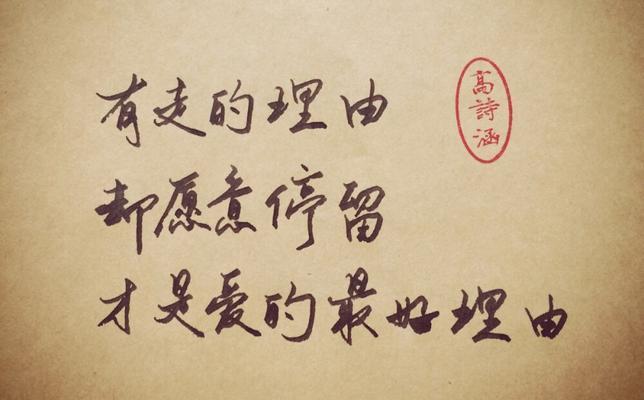 有走的理由
却愿意停留
才是爱的最好理由
高詩涵